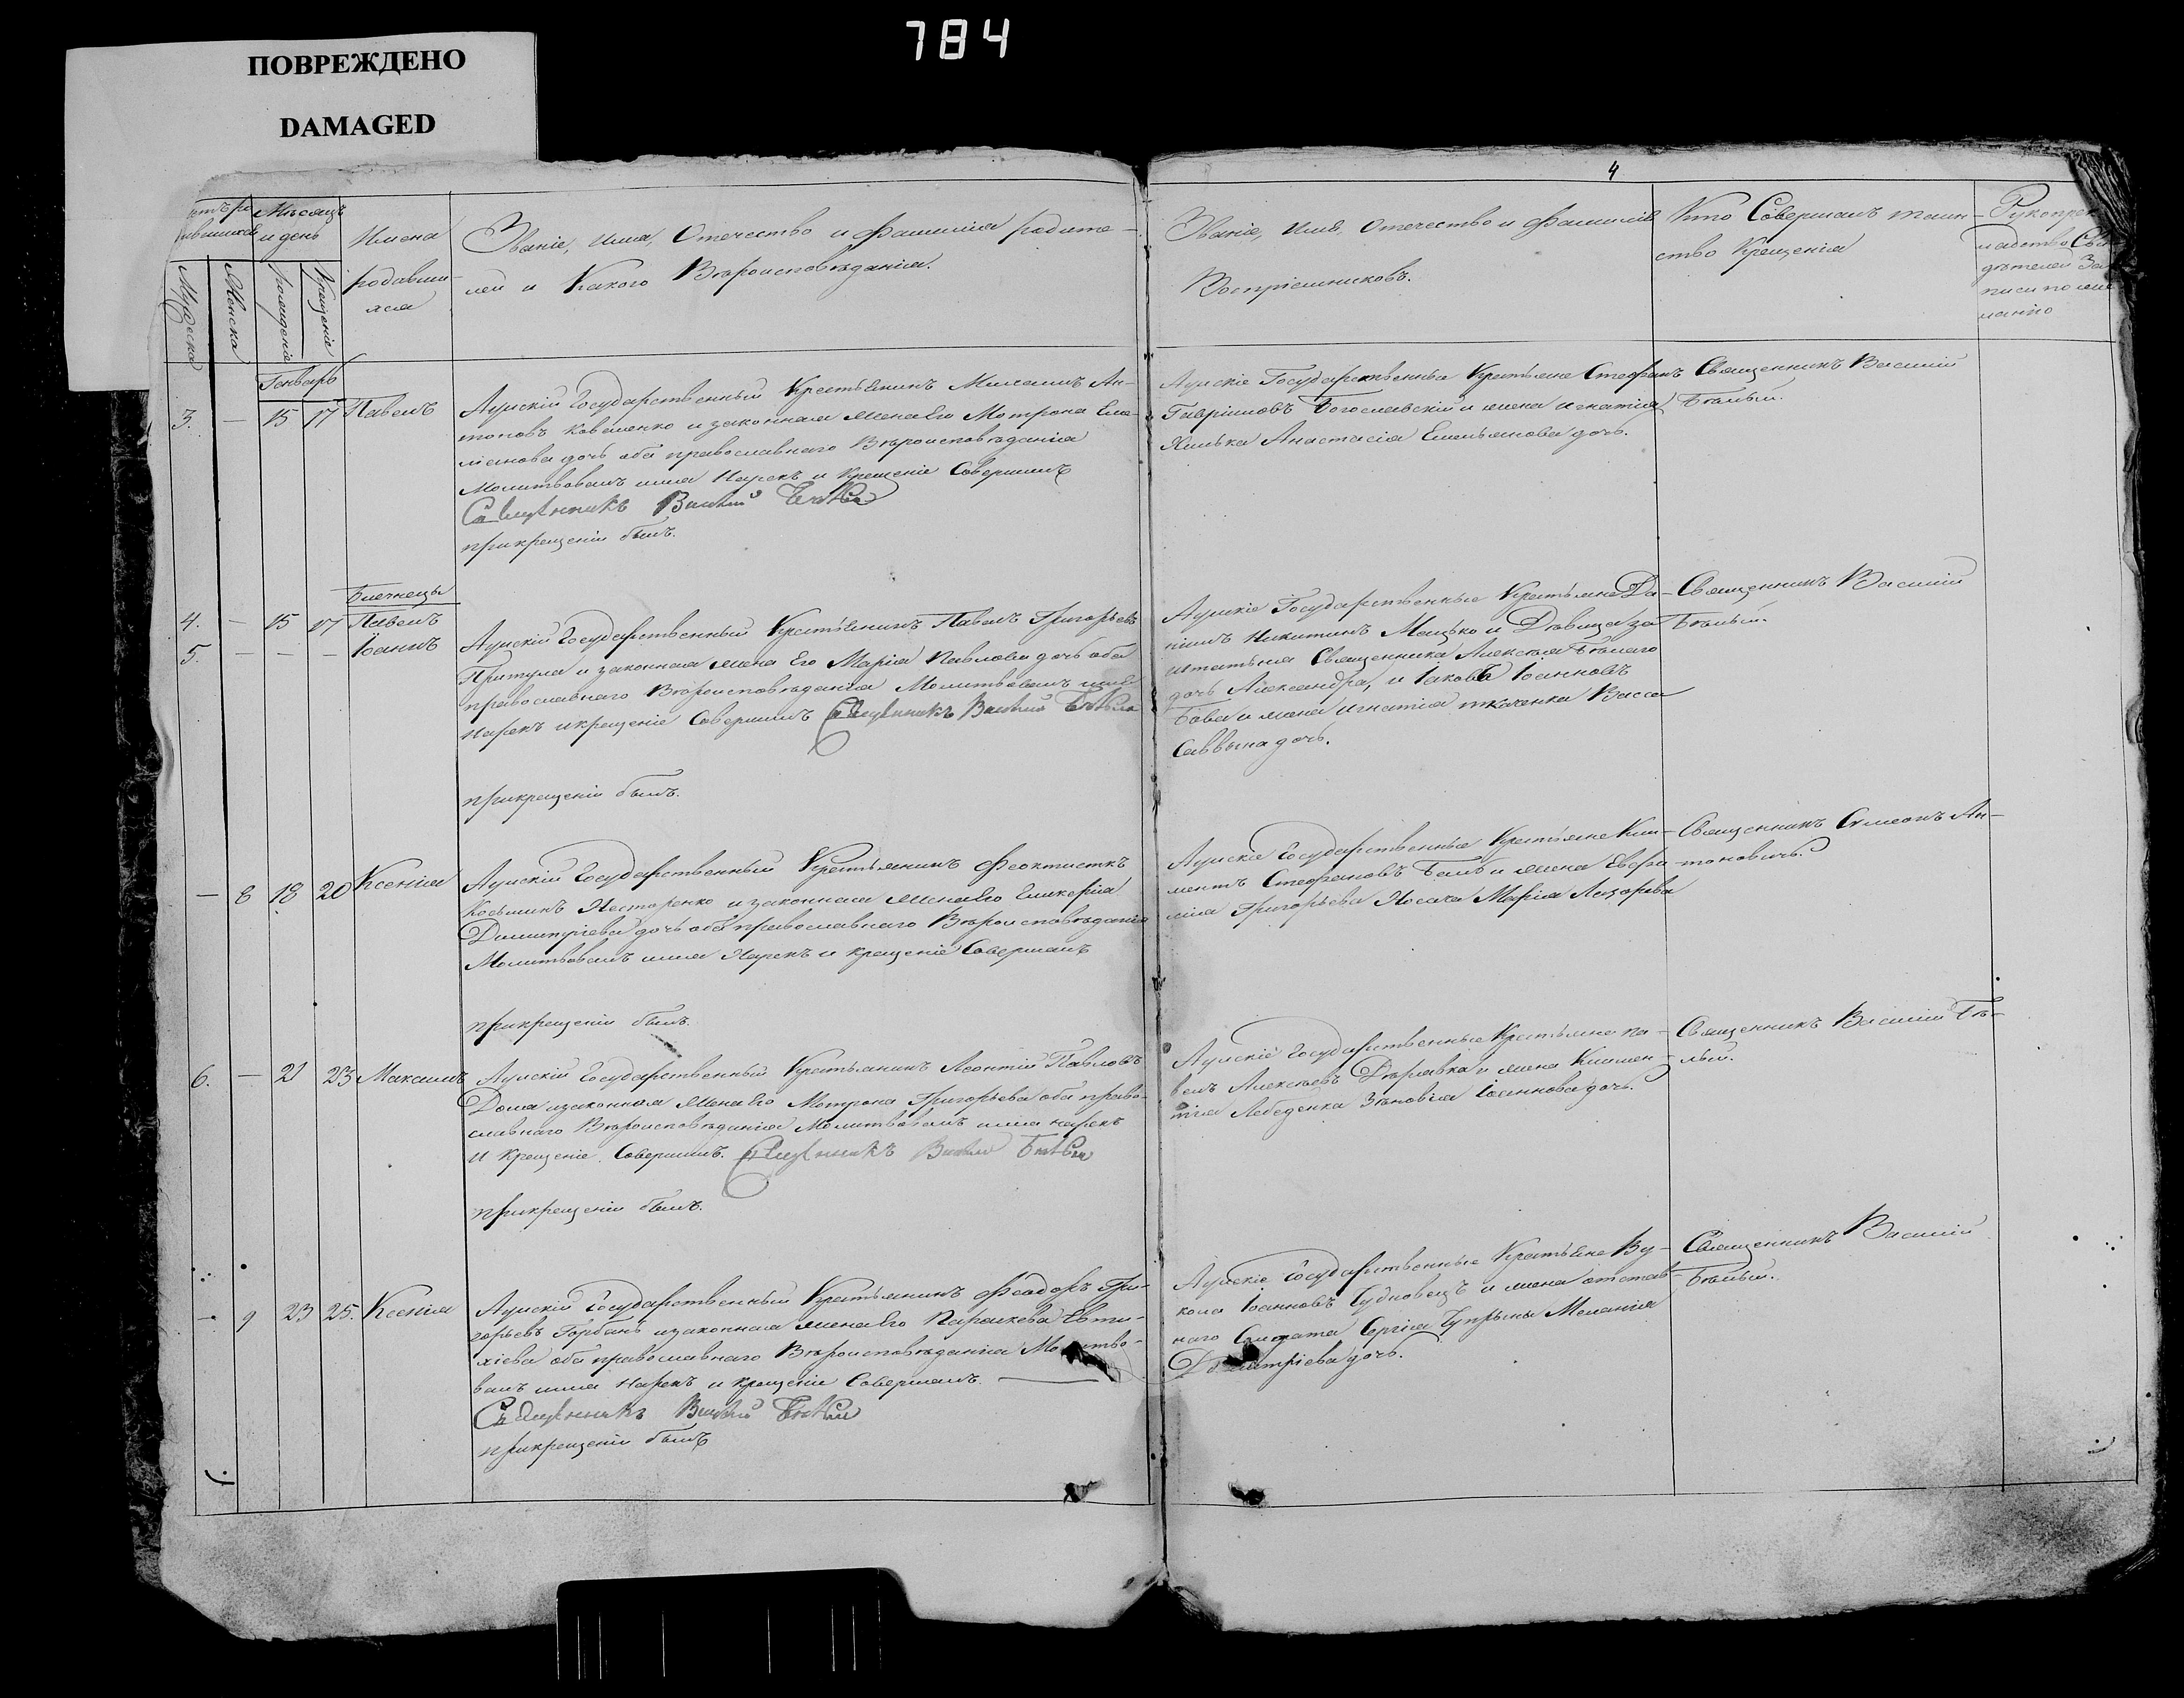 784
ПОВРЕЖДЕНО
DAMAGED
4
Мѣсяцъ
и день
Мужеска
Женска
Рожденіе
Крещеніе
Имена
родивши-
хся
Званіе, имя, Отечество и фамилія родите-
лей и Какого Вѣроисповѣданія.
Званіе, Имя, Отечество и фамилія
Воспріемниковъ.
Кто Совершалъ таин-
ство Крещенія
Генварь
3. — 15 17 Павелъ
Аумскій Государственный Крестьянинъ Михаилъ Ан-
тоновъ Коваленко и законная жена Его Мотрона Еме-
ліанова дочь оба православнаго Вѣроисповѣданія
Молитвовалъ имя Нарекъ и Крещеніе Совершилъ
Священникъ Василій Бѣлый
прикрещеніи былъ.
Аумскіе Государственные Крестьяне Стефанъ
Гавріиловъ Богославскій и жена Игнатія
Хилька Анастасія Емельянова дочь.
Священникъ Василій
Бѣлый.
Близнецы
4. — 15 17 Павелъ
5. — — — Іоаннъ
Аумскій Государственный Крестьянинъ Павелъ Григорьевъ
Притула и законная жена Его Марія Павлова дочь оба
православнаго Вѣроисповѣданія Молитвовалъ имя
Нарекъ и крещеніе Совершилъ Священникъ Василій Бѣлый
прикрещеніи былъ.
Аумскіе Государственные Крестьяне Да-
ніилъ Никитинъ Мацько и Дѣвица за-
штатнаго Священника Алексѣя Бѣлаго
дочь Александра, и Іаковъ Іоанновъ
Бова и жена Игнатія ткаченка Васса
Саввина дочь.
Священникъ Василій
Бѣлый.
— 8 18 20 Ксенія
Аумскій Государственный Крестьянинъ Феоктистъ
Косьминъ Нестеренко и законная жена Его Гликерія
Димитріева дочь оба православнаго Вѣроисповѣданія
Молитвовалъ имя Нарекъ и крещеніе Совершалъ
прикрещеніи былъ.
Аумскіе Государственные Крестьяне Кли-
ментъ Стефановъ Бель и жена Евфи-
мія Григорьева Носача Марія Лазарева
Священникъ Симеонъ Ан-
тоновичъ.
6. — 21 23 Максимъ
Аумскій Государственный Крестьянинъ Леонтій Павловъ
Дома и законная жена Его Мотрона Григорьева оба право-
славнаго Вѣроисповѣданія Молитвовалъ имя нарекъ
и Крещеніе Совершилъ. Священникъ Василій Бѣлый
прикрещеніи былъ.
Аумскіе Государственные Крестьяне Па-
велъ Алексѣевъ Державка и жена Климен-
тія Лебеденка Зѣновія Іоаннова дочь.
Священникъ Василій Бѣ-
лый.
— 9 23 25. Ксенія
Аумскій Государственный Крестьянинъ Феодоръ Гри-
горьевъ Горбань и законная жена Его Параскева Евти-
хіева оба православнаго Вѣроисповѣданія
валъ имя Нарекъ и крещеніе Совершалъ.
Священникъ Василій Бѣлый
прикрещеніи былъ
Аумскіе Государственные Крестьяне Ву-
кола Іоанновъ Судновецъ и жена отстав-
наго Солдата Сергія Чупрыны Меланія
Димитріева дочь.
Священникъ Василій
Бѣлый.